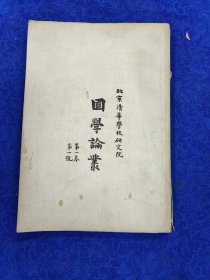 北京清華學校研究院
國學論叢
第一卷
第一號